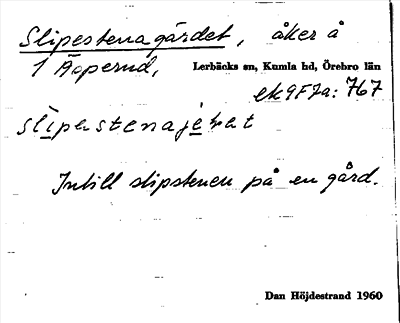 Slipestenagärdet, åker å
1 Äsperud, Lerbäcks sn, Kumla hd, Örebro län
ek 9F7a: 767
slipestenajeḥet
Intill slipstenen på en gård.
Dan Höjdestrand 1960